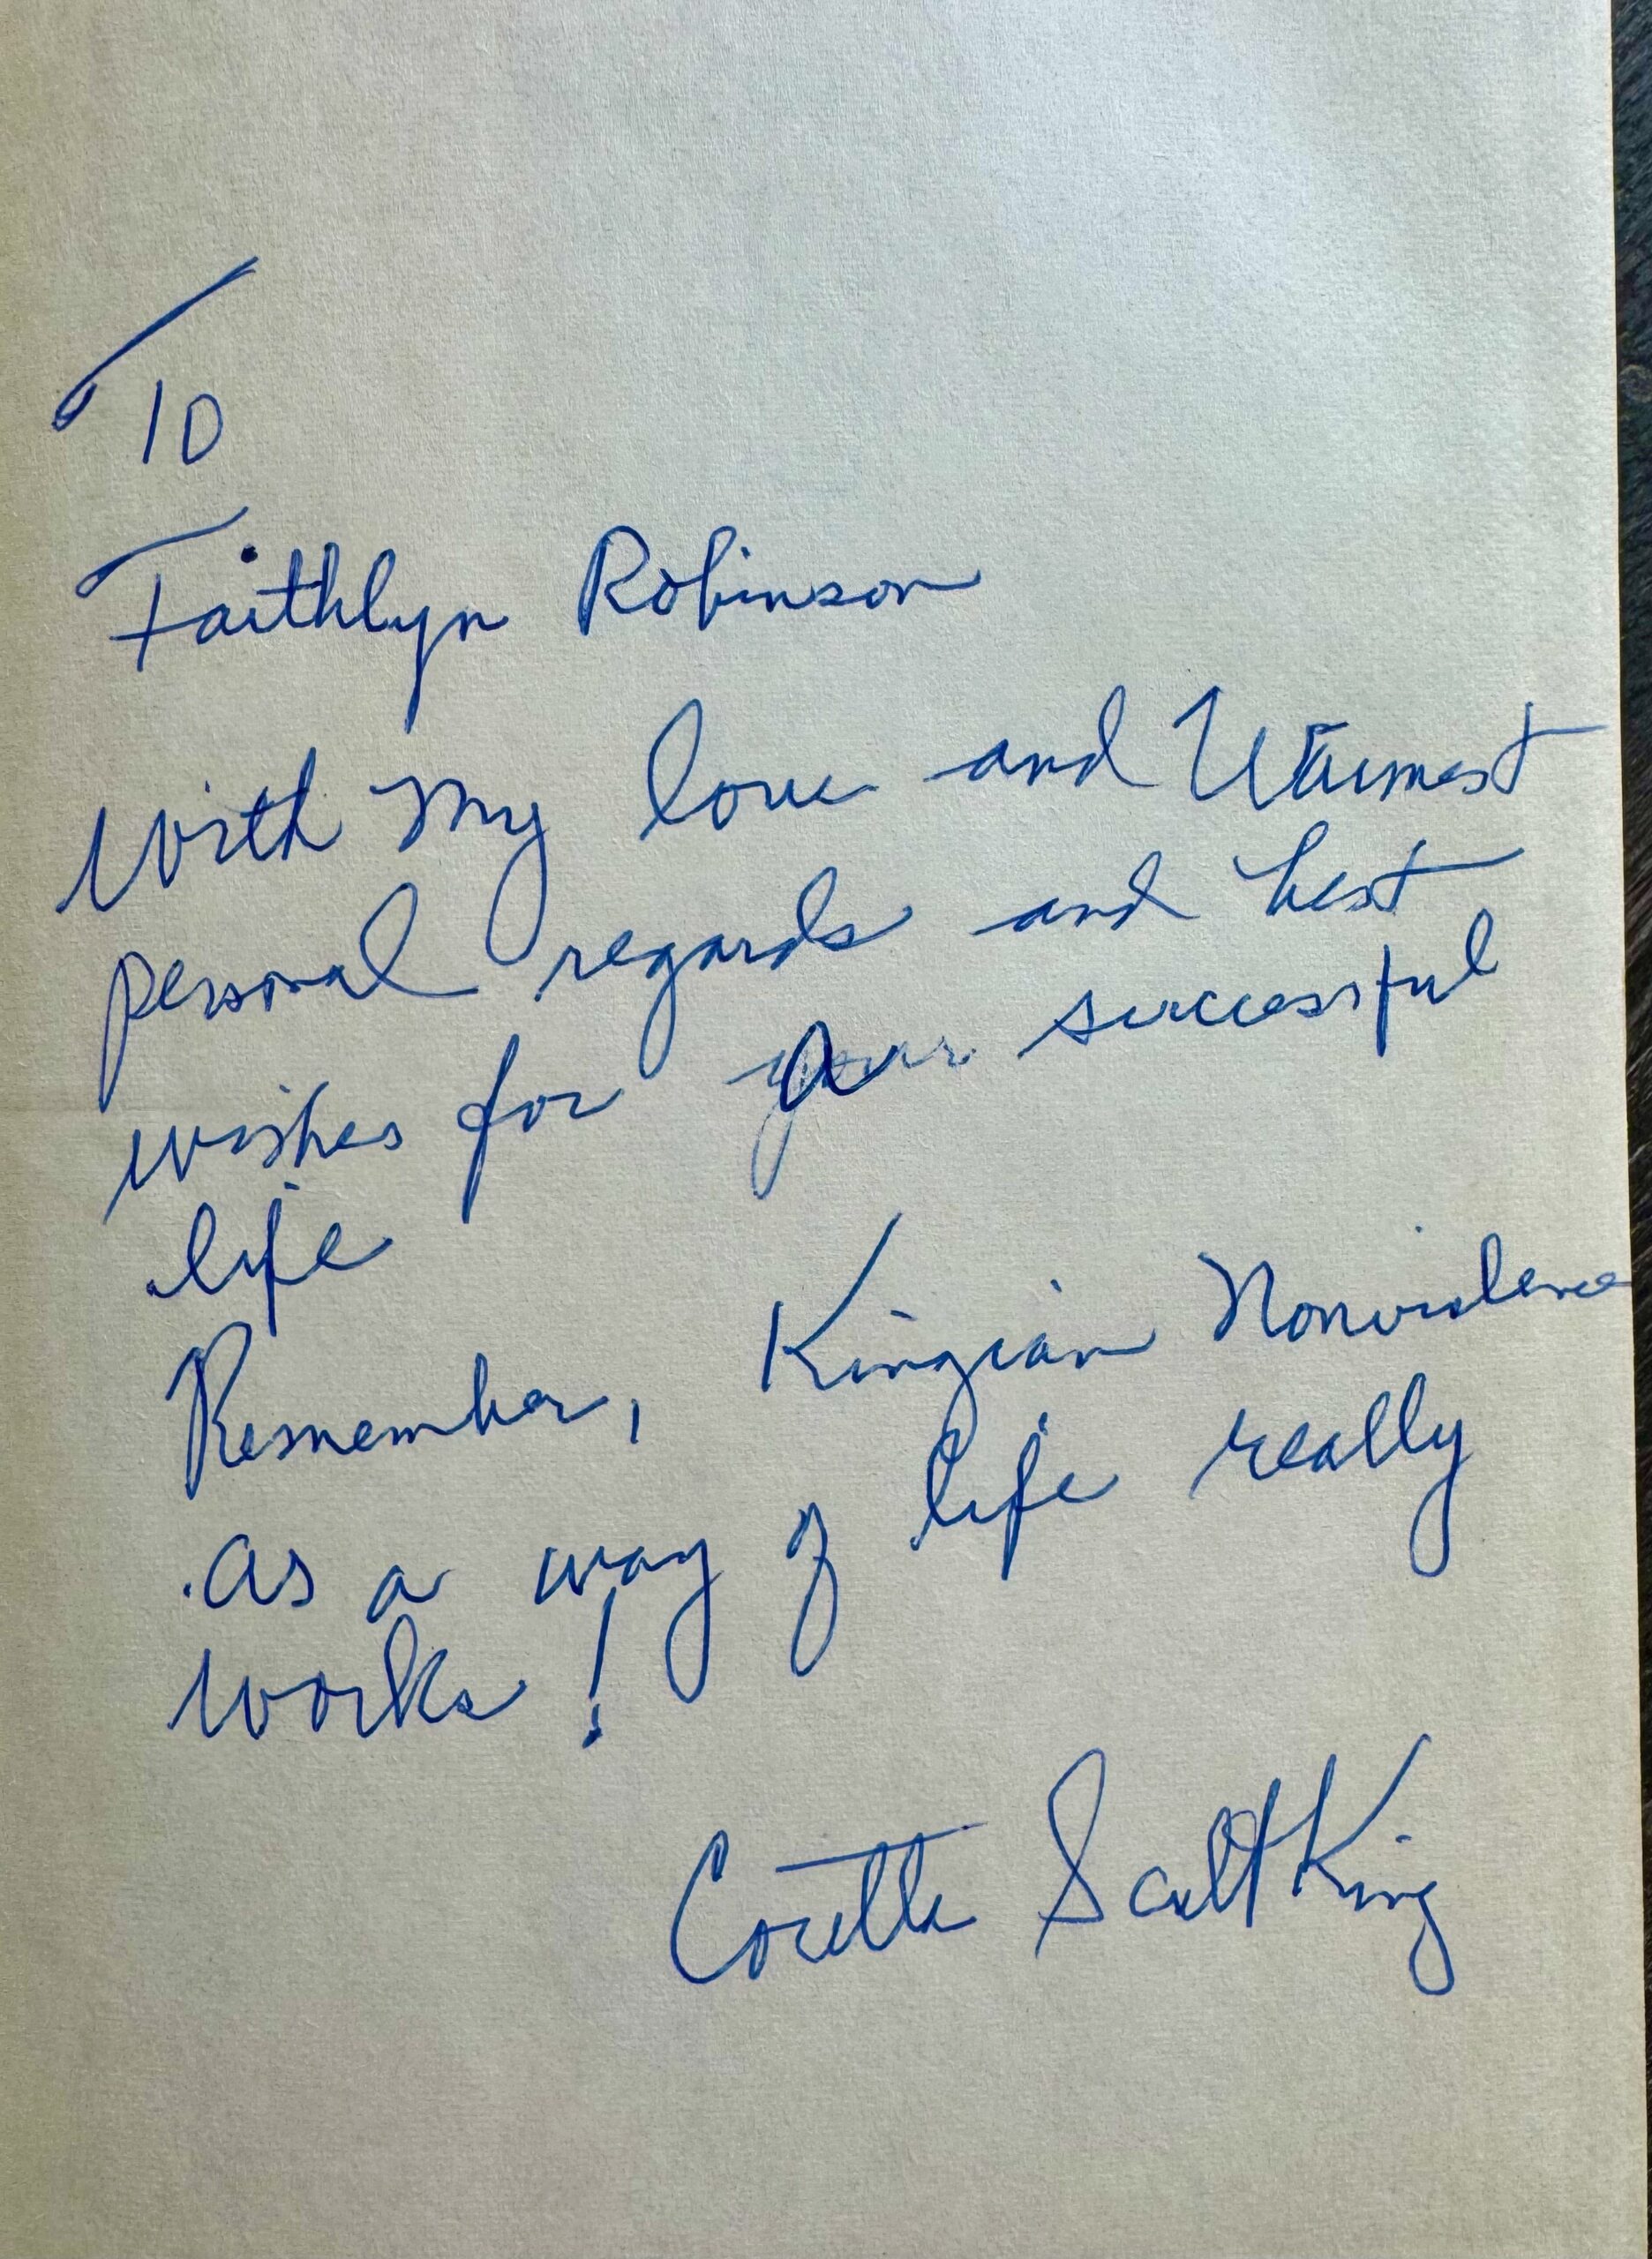 To
Faithlyn Robinson
With my love and Warmest
personal regards and best
wishes for a successful
life
Remember, Kingian Nonviolence
as a way of life really
works!
Coretta Scott King